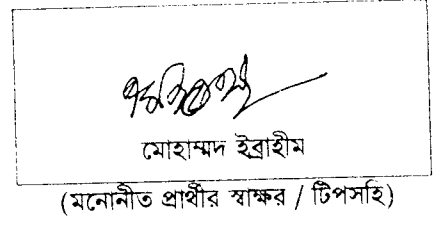 মোহাম্মদ ইব্রাহীম
(মনোনীত প্রার্থীর স্বাক্ষর / টিপসহি)